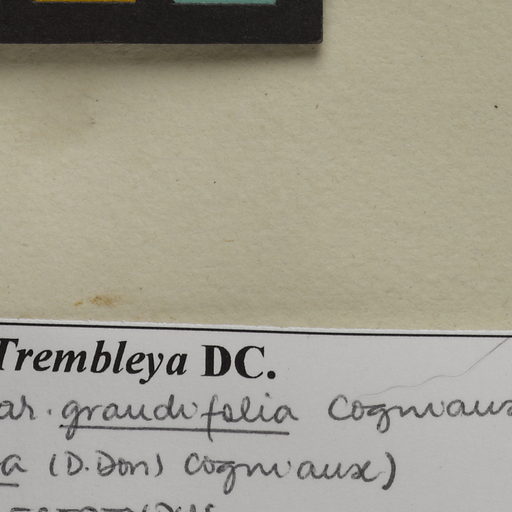 Trembleya DC.
ar. grandifolia Cogniaux
a (D. Don) Cogniaux)